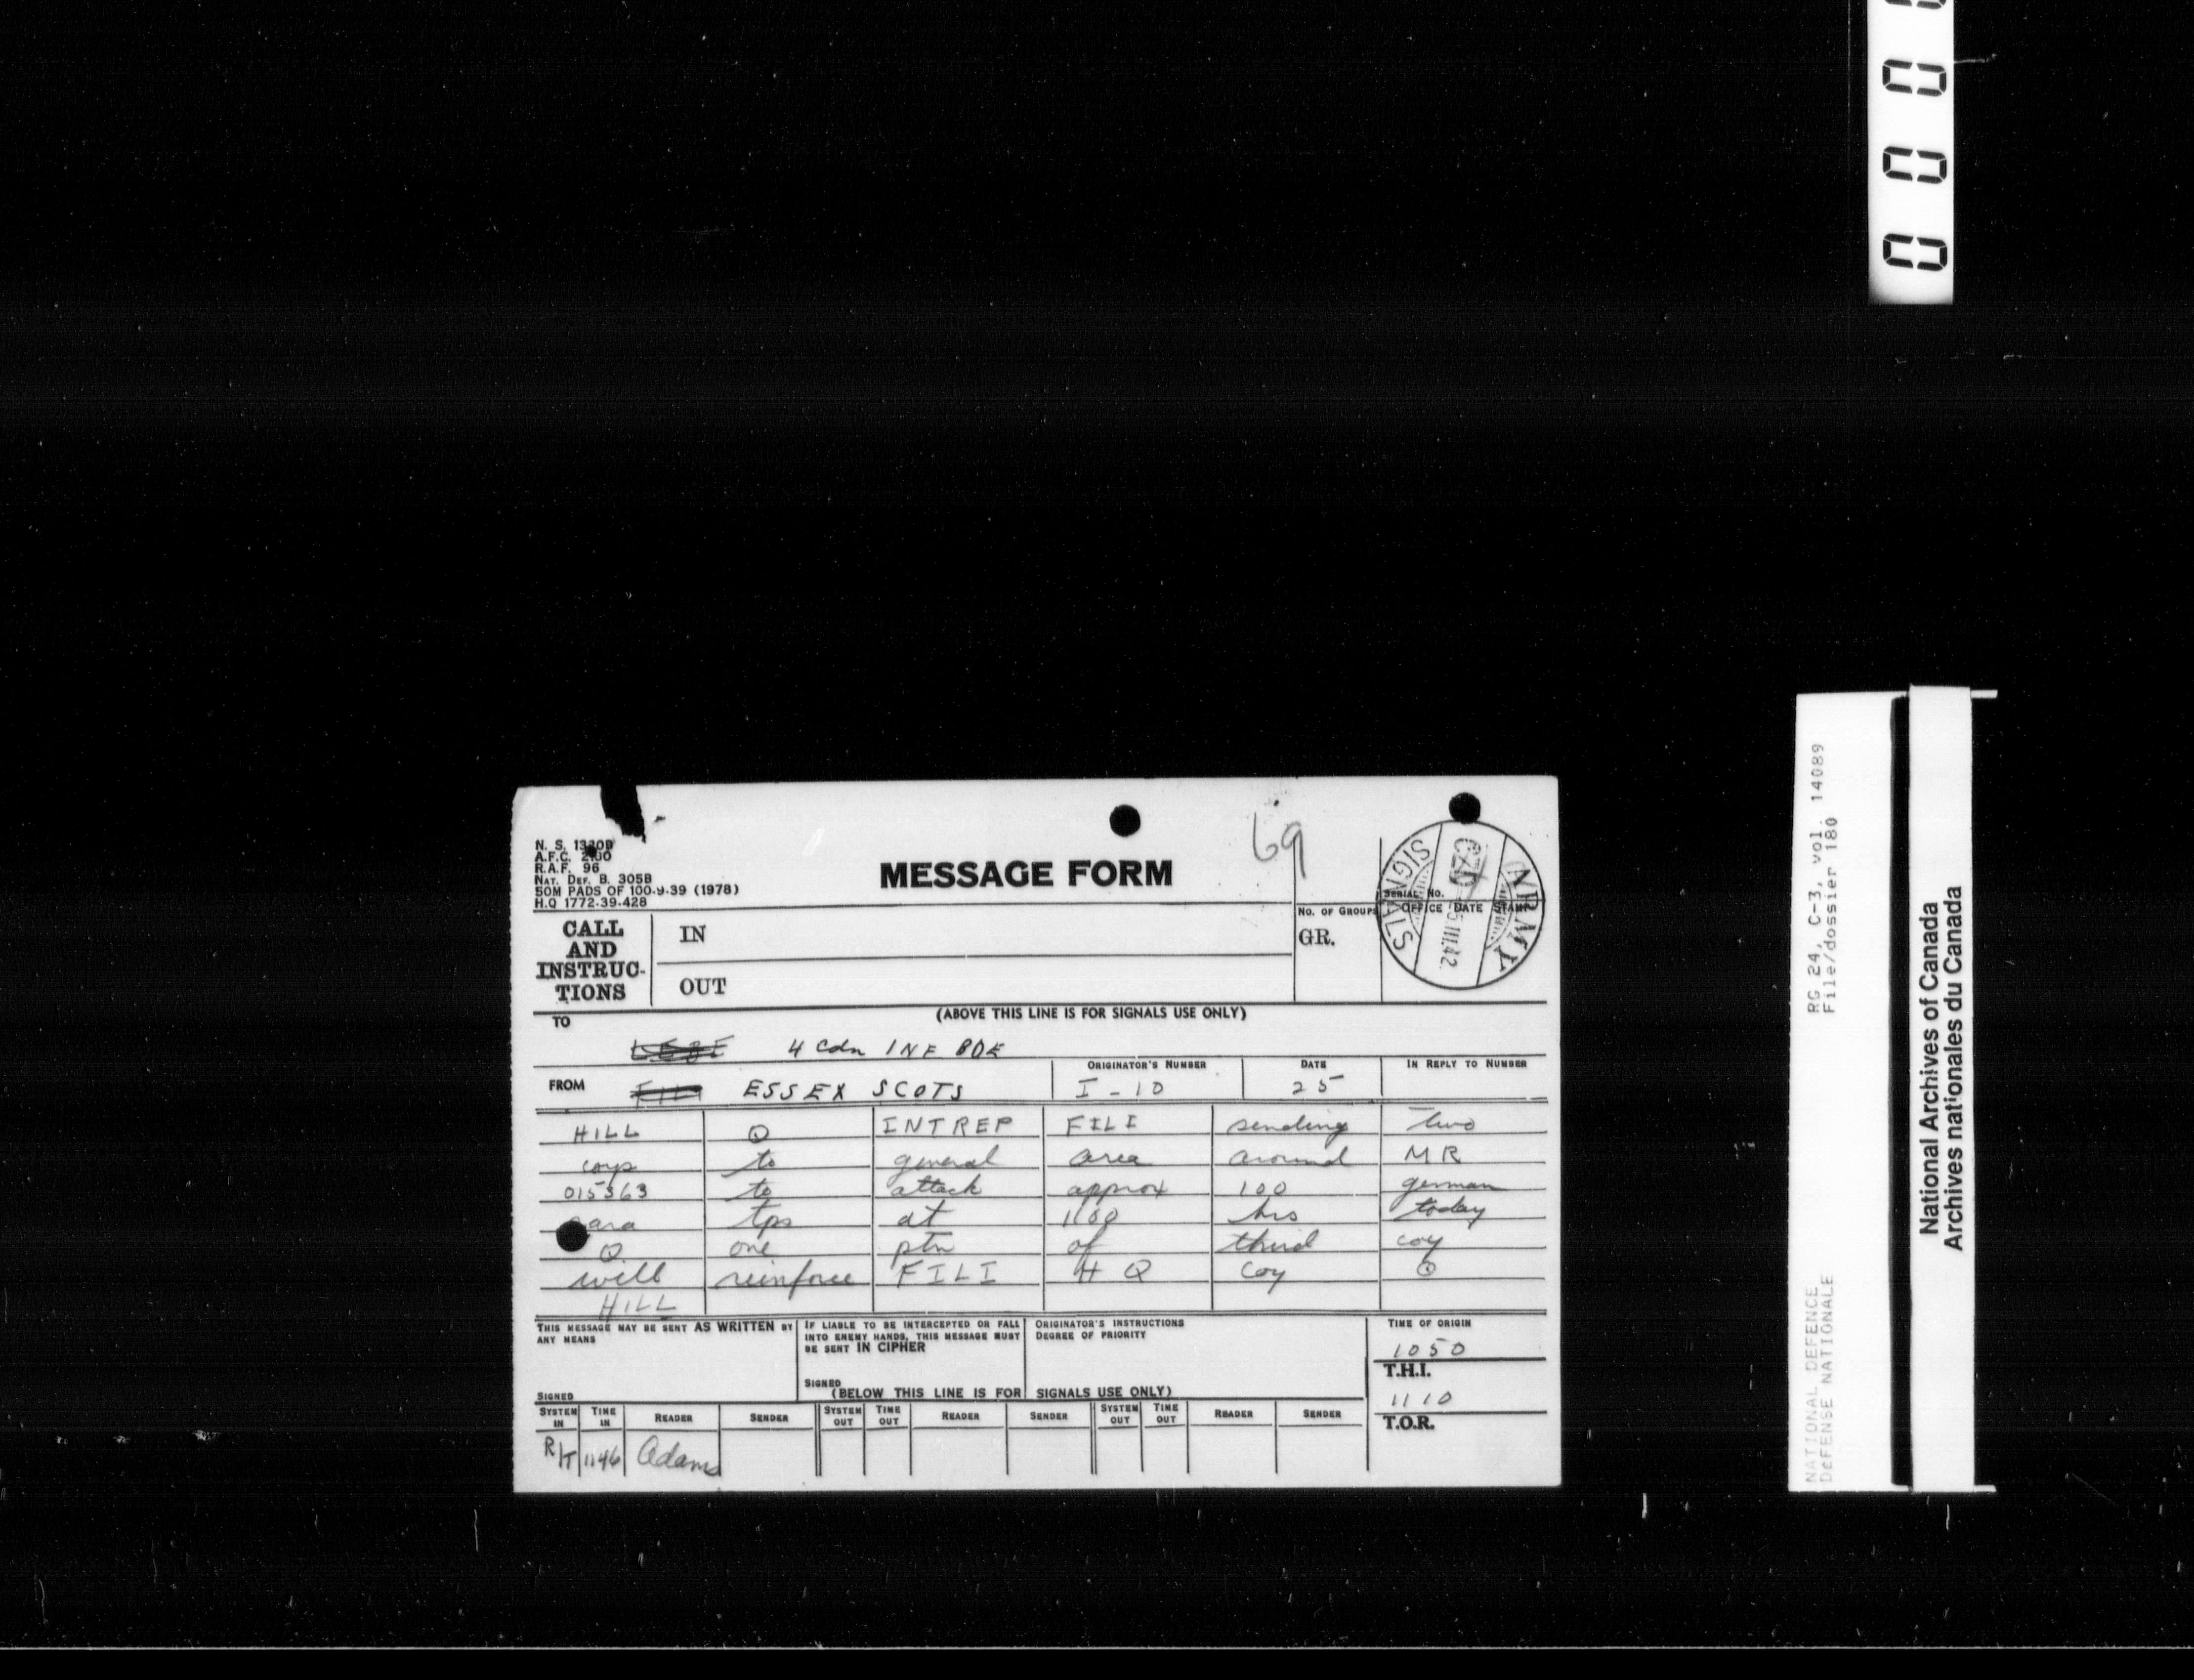 0 0 0 0
N. S. 1320B
A.F.C. 2100
R.A.F. 96
NAT. DEF. B. 305B
50M PADS OF 100-9-39 (1978)
H.Q 1772-39-428
MESSAGE FORM
69
ARMY
SIGNALS
III.42
SERIAL NO.
OFFICE DATE STAMP
NO. OF GROUPS
GR.
CALL AND INSTRUC-TIONS
IN
OUT
(ABOVE THIS LINE IS FOR SIGNALS USE ONLY)
TO
4 Cdn INF BDE
FROM ESSEX SCOTS
ORIGINATOR'S NUMBER
I-10
DATE
25
IN REPLY TO NUMBER
HILL O INTREP FILI sending two
coys to general area around MR
015363 to attack approx 100 german
para tps at 1100 hrs today
O one ptn of third coy
will reinforce FILI H Q coy O
HILL
THIS MESSAGE MAY BE SENT AS WRITTEN BY
ANY MEANS
SIGNED
IF LIABLE TO BE INTERCEPTED OR FALL
INTO ENEMY HANDS, THIS MESSAGE MUST
BE SENT IN CIPHER
SIGNED
ORIGINATOR'S INSTRUCTIONS
DEGREE OF PRIORITY
TIME OF ORIGIN
1050
T.H.I.
1110
T.O.R.
(BELOW THIS LINE IS FOR SIGNALS USE ONLY)
SYSTEM IN TIME IN READER SENDER SYSTEM OUT TIME OUT READER SENDER SYSTEM OUT TIME OUT READER SENDER
R/T 1146 Adams
RG 24, C-3, vol. 14089
File/dossier 180
NATIONAL DEFENCE
DÉFENSE NATIONALE
National Archives of Canada
Archives nationales du Canada